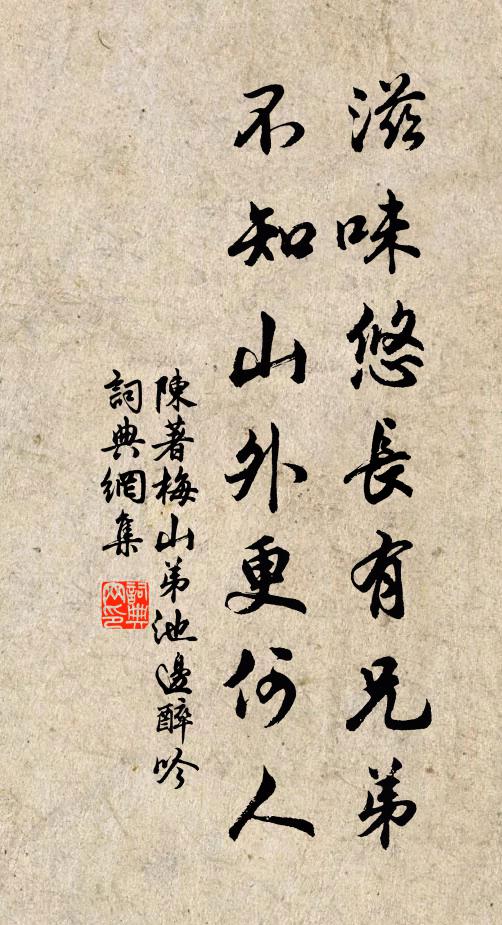 滋味悠長有兄弟
不知山外更何人
陳著梅山弟池邊醉吟
詞典網集
詞典网印